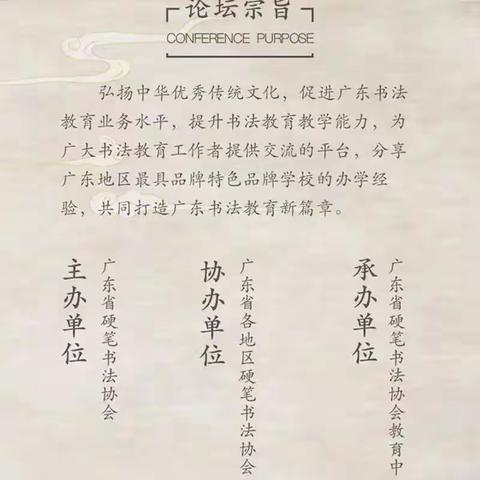 论坛宗旨
CONFERENCE PURPOSE
弘扬中华优秀传统文化，促进广东书法
教育业务水平，提升书法教育教学能力，为
广大书法教育工作者提供交流的平台，分享
广东地区最具品牌特色品牌学校的办学经
验，共同打造广东书法教育新篇章。
主办单位
广东省硬笔书法协会
协办单位
广东省各地区硬笔书法协会
承办单位
广东省硬笔书法协会教育中